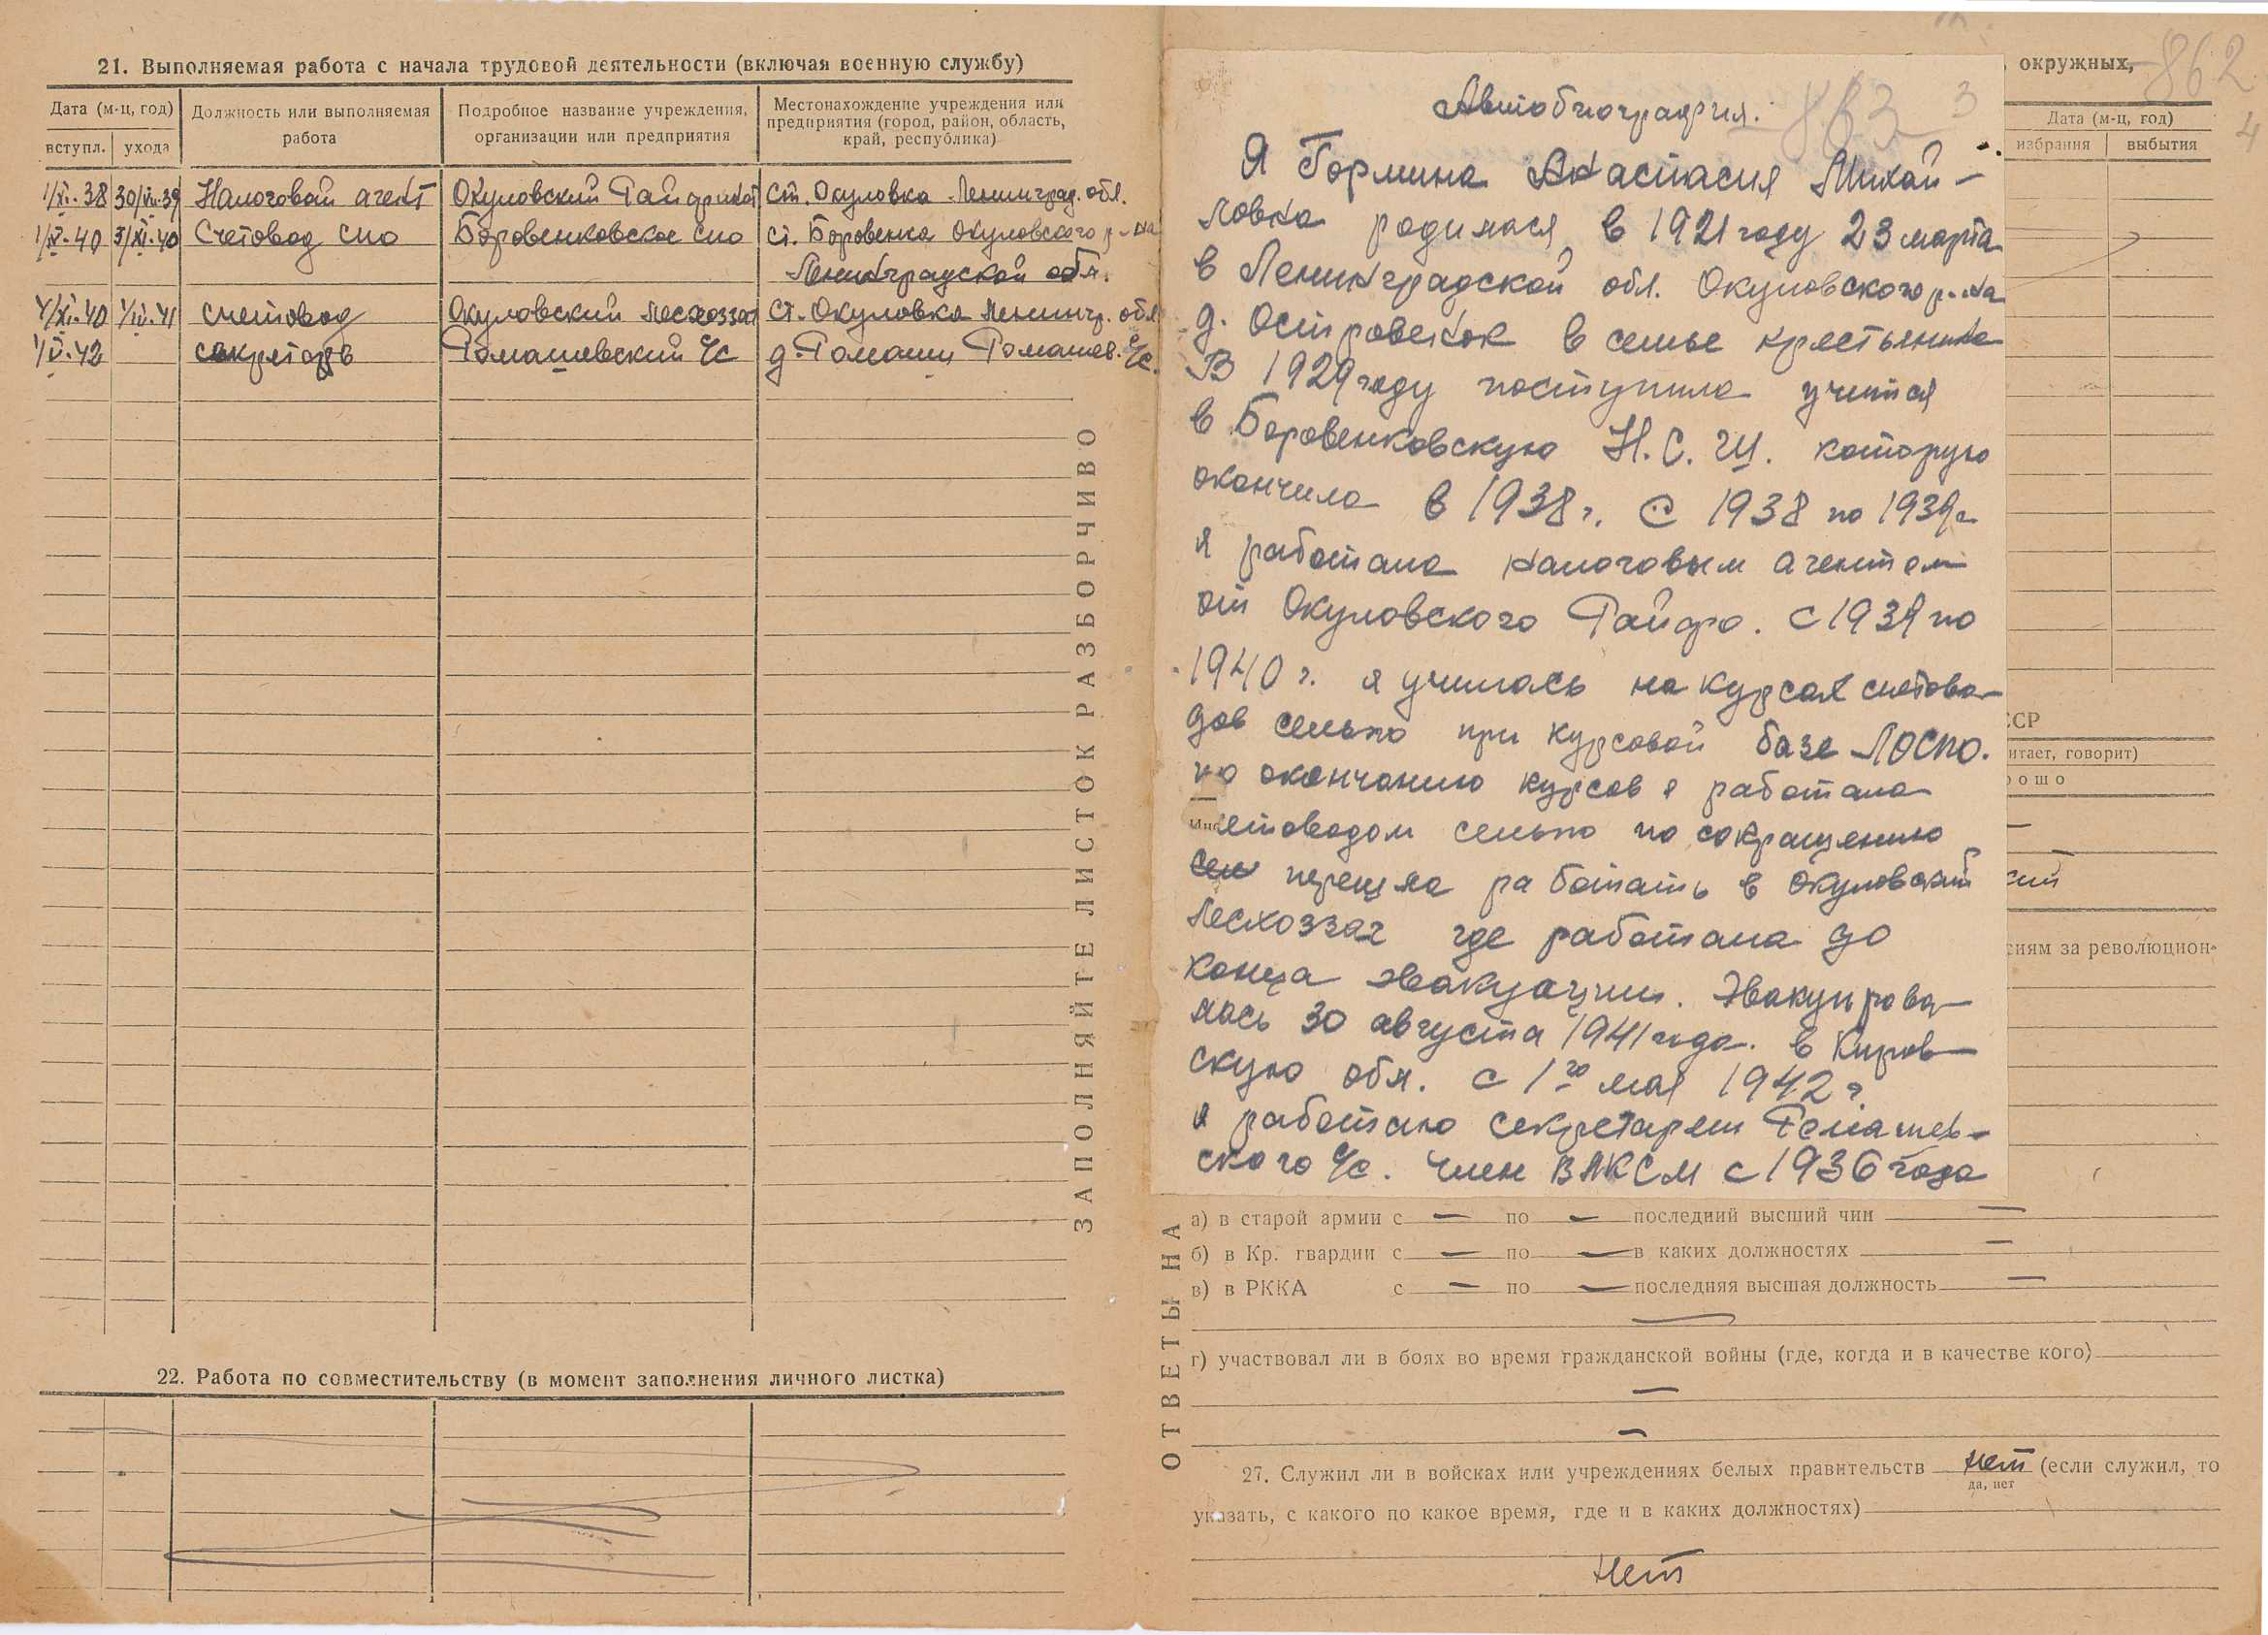 21. Выполняемая работа с начала трудовой деятельности (включая военную службу)
Дата (м-ц, год) Должность или выполняемая работа Подробное название учреждения, организации или предприятия Местонахождение учреждения или предприятия (город, район, область, край, республика)
вступл. ухода
1/XI-38 30/VII-39 Налоговой агент Окуловский Райфинот ст. Окуловка Ленинград. обл.
1/IV-40 3/XI-40 Счетовод спо Боровенковское спо ст. Боровенка Окуловского р-на
Ленинградской обл.
4/XI-40 счетовод Окуловский лесхоззаг ст. Окуловка Ленингр. обл
1/V-42 секретарь Ромашевский С/с д. Ромаши Ромашев. С/с.
22. Работа по совместительству (в момент заполнения личного листка)
ЗАПОЛНЯЙТЕ ЛИСТОК РАЗБОРЧИВО
окружных,
862
4
Дата (м-ц, год)
избрания выбытия
Автобиография.
863 3
Я Гормина Анастасия Михай-
ловна родилася в 1921 году 23 марта
в Ленинградской обл. Окуловского р-на
д. Островенок в семье крестьянина
В 1929 году поступила учится
в Боровенковскую Н.С.Ш. которую
окончила в 1938 г. С 1938 по 1939 г
я работала налоговым агентом
от Окуловского Райфо. С 1939 по
1940 г. я училась на курсах счетово-
дов сельпо при курсовой базе ЛОСПО.
по окончанию курсов я работала
счетоводом сельпо по сокращению
сел перешла работать в Окуловский
Лесхоззаг где работала до
конца эвакуации. Эвакуирова-
лась 30 августа 1941 года. в Киров-
скую обл. с 1го мая 1942 г.
я работаю секретарем Ромашев-
ского С/с. член ВЛКСМ с 1936 года
ССР
итает, говорит)
рошо
ский
сиям за революцион-
ОТВЕТЫ НА
а) в старой армии с — по — последний высший чин —
б) в Кр. гвардии с — по — в каких должностях —
в) в РККА с — по — последняя высшая должность —
г) участвовал ли в боях во время гражданской войны (где, когда и в качестве кого)
—
—
27. Служил ли в войсках или учреждениях белых правительств нет (если служил, то
да, нет
указать, с какого по какое время, где и в каких должностях)
Нет